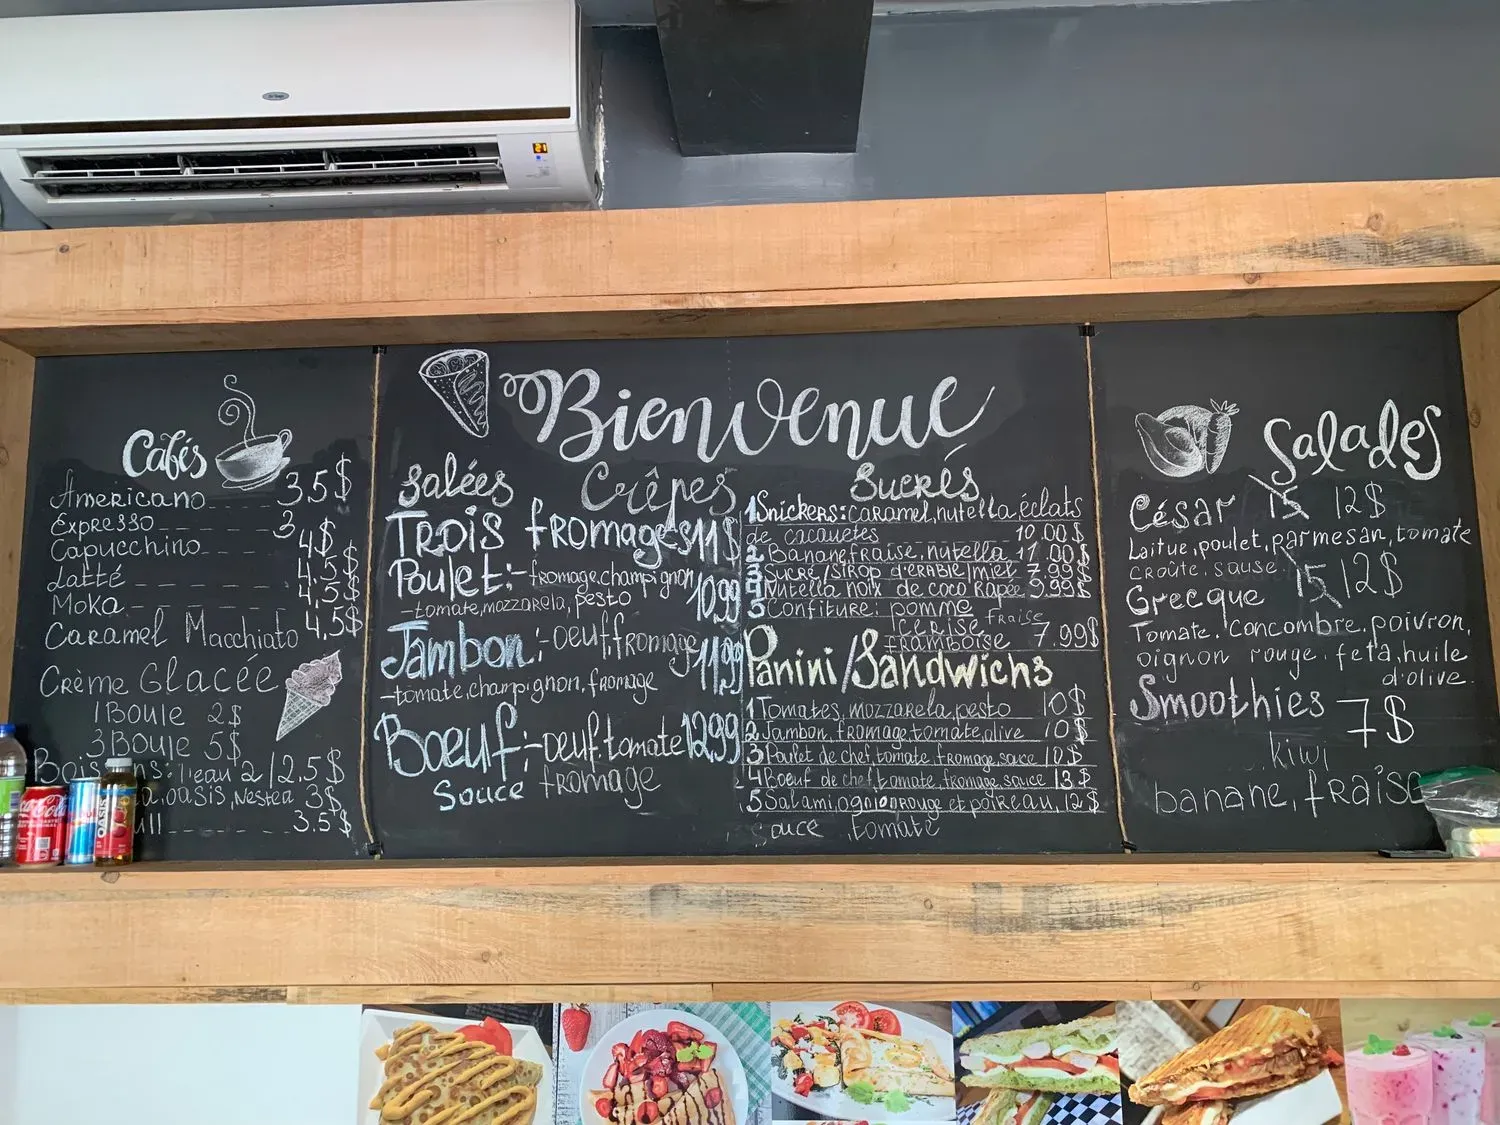 Bienvenue
Cafés
Americano 3.5$
Expresso 3
Capucchino 4$
Latté 4.5$
Moka 4.5$
Caramel Macchiato 4.5$
Crème Glacée
1 Boule 2$
3 Boule 5$
l'eau 2/2.5$
oasis, Nestea 3$
3.5$
Crêpes
Salées
Trois fromages 11$
Poulet:- fromage, champignon 10,99
- tomate, mozzarela, pesto
Jambon:- oeuf, fromage 11,99
- tomate, champignon, fromage
Boeuf:- oeuf, tomate 12,99
Souce fromage
Sucrés
1 Snickers: caramel, nutella, éclats
de cacauetes 10.00$
2 Banane, fraise, nutella 11.00$
3 Sucre/sirop d'erable/miel 7.99$
4 Nutella noix de coco Rapée 9.99$
5 Confiture: pomme fraise
cerise
framboise 7.99$
Panini/Sandwichs
1 Tomates, mozzarela, pesto 10$
2 Jambon, fromage, tomate, olive 10$
3 Poulet de chef, tomate, fromage, sauce 10$
4 Boeuf de chef, tomate, fromage, sauce 13$
5 Salami, ognion rouge et poireau, 12$
souce, tomate
Salades
César 15 12$
Laitue, poulet, parmesan, tomate
croûte, sause
Grecque 15 12$
Tomate, concombre, poivron,
oignon rouge, feta, huile
d'olive
Smoothies 7$
kiwi
banane, fraise
21
Coca-Cola
OASIS